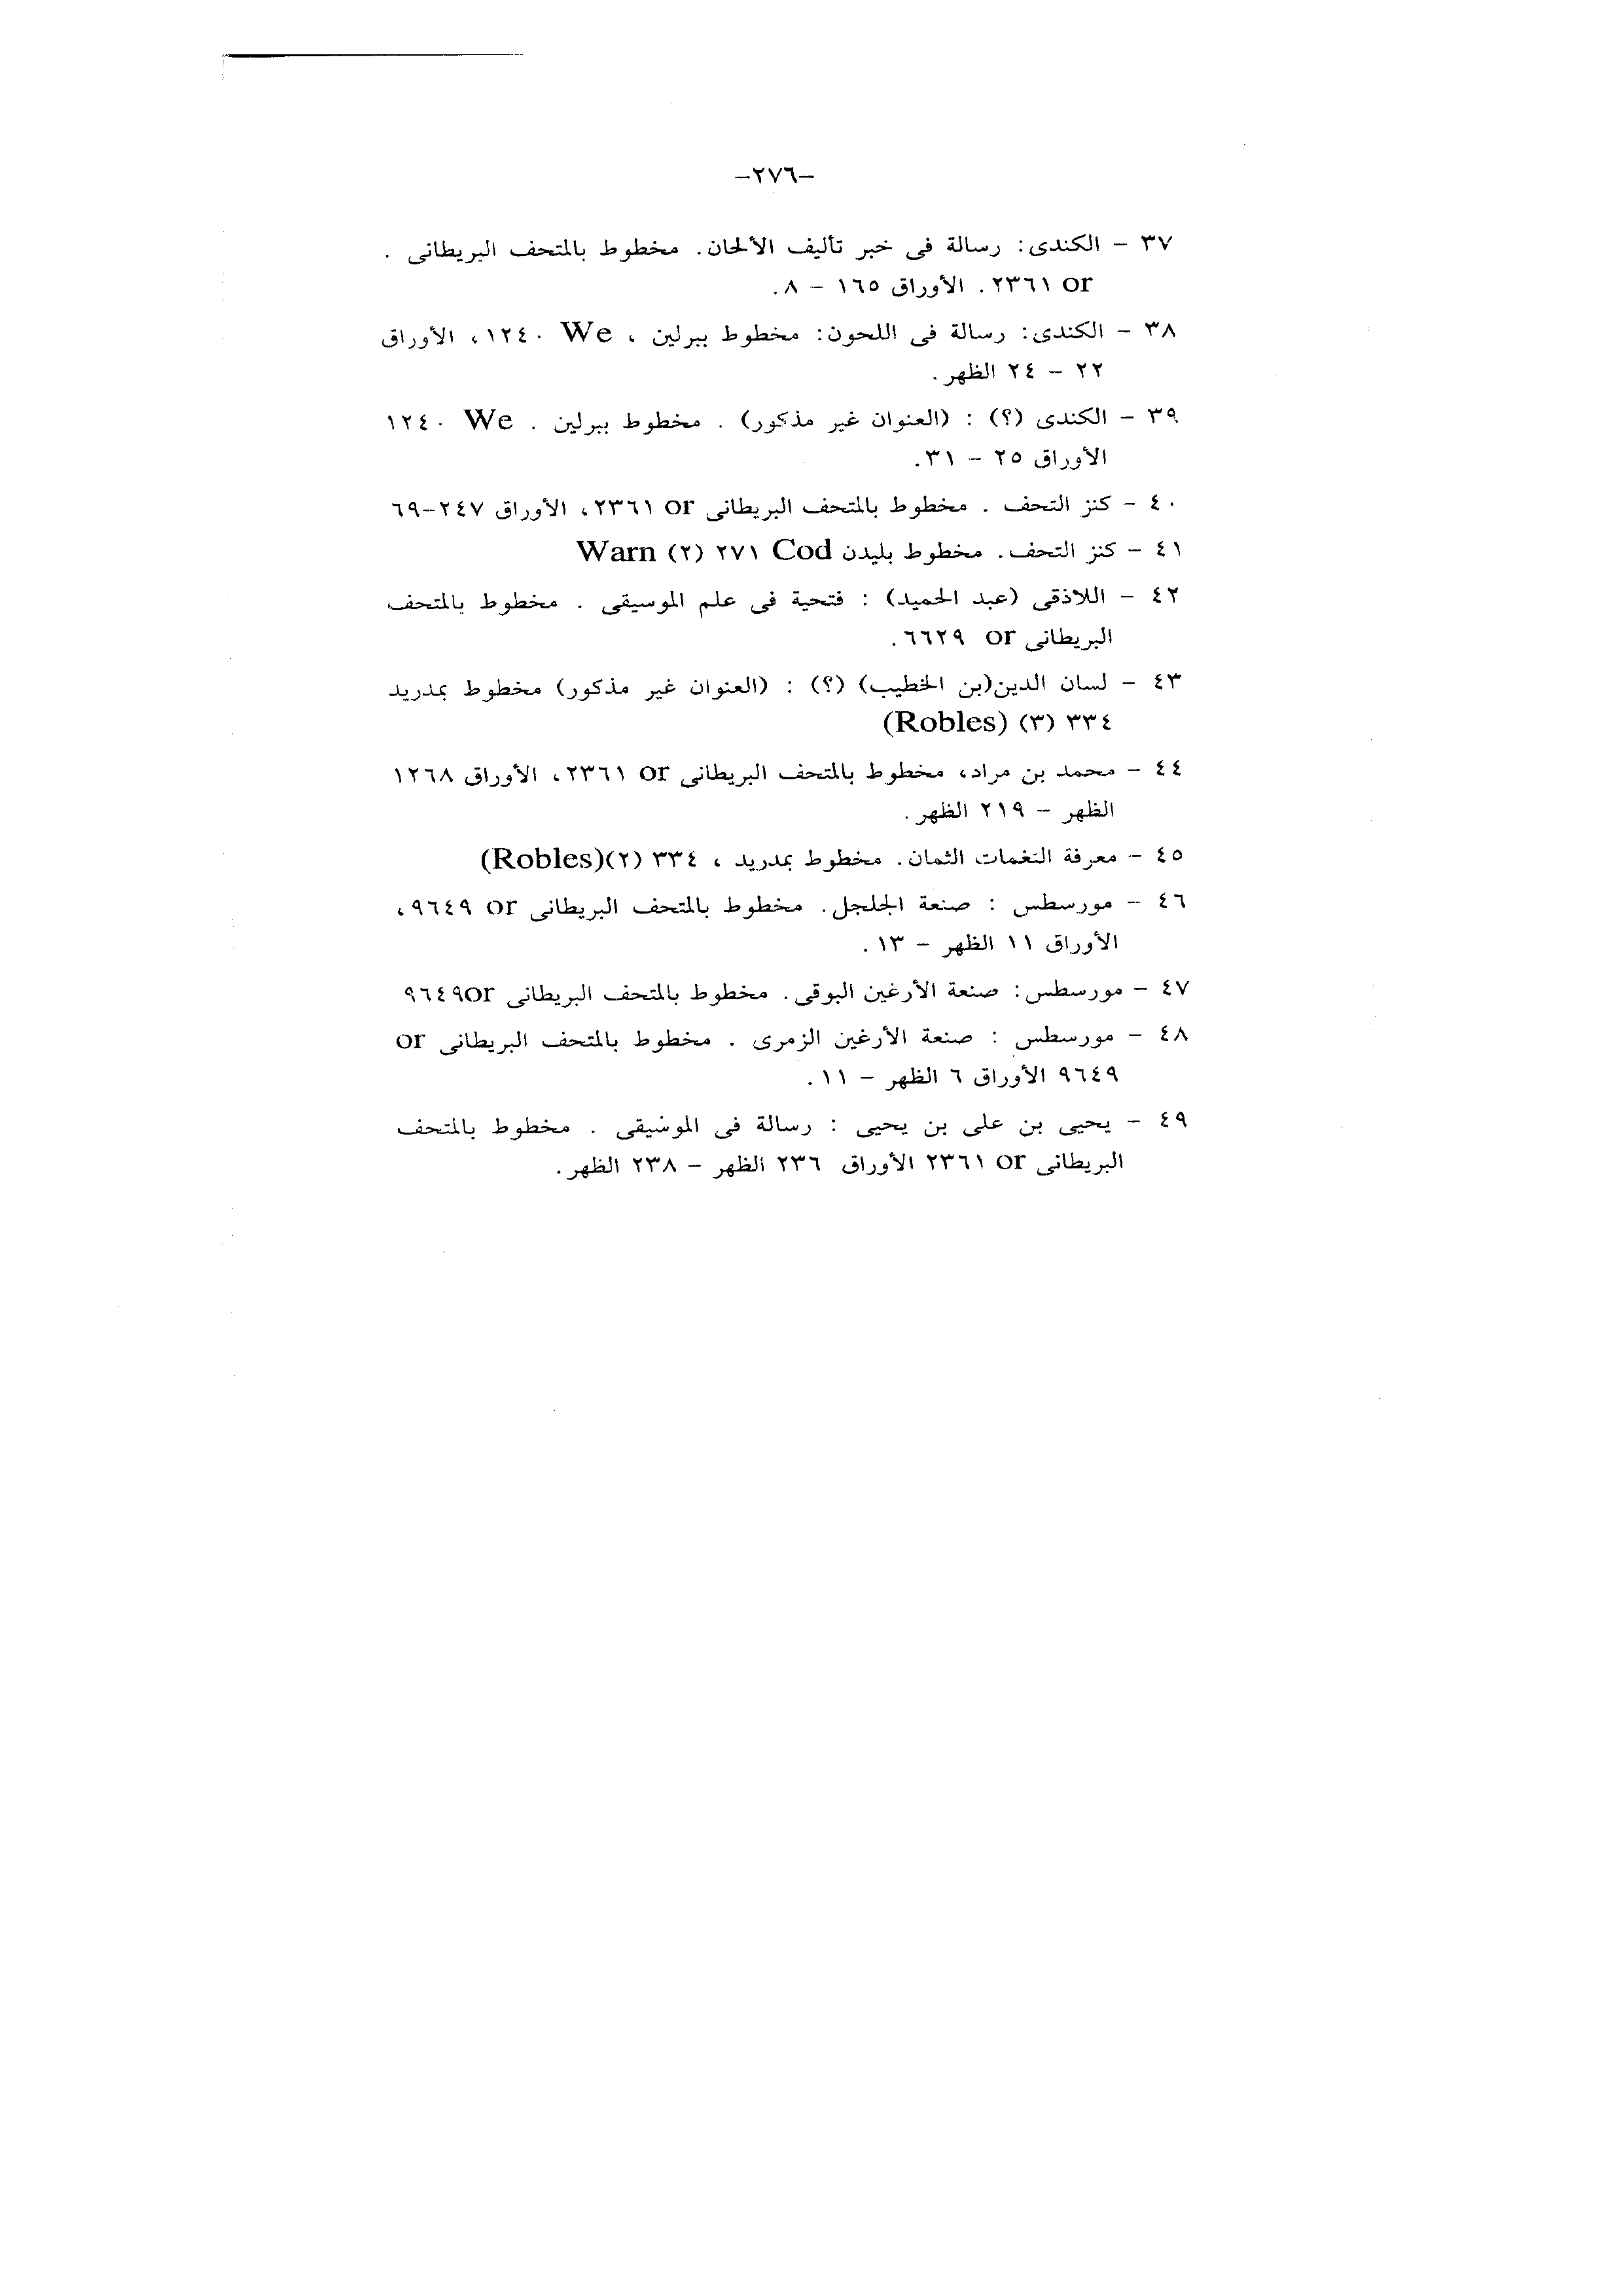 –٢٧٦–
٣٧ – الكندى: رسالة فى خبر تأليف الألحان. مخطوط بالمتحف البريطانى .
٢٣٦١ or. الأوراق ١٦٥ – ٨.
٣٨ – الكندى: رسالة فى اللحون: مخطوط ببرلين ، We ١٢٤٠، الأوراق
٢٢ – ٢٤ الظهر.
٣٩ – الكندى (؟) : (العنوان غير مذكور) . مخطوط ببرلين . We ١٢٤٠
الأوراق ٢٥ – ٣١.
٤٠ – كنز التحف . مخطوط بالمتحف البريطانى or ٢٣٦١، الأوراق ٢٤٧–٦٩
٤١ – كنز التحف. مخطوط بليدن Cod ٢٧١ (٢) Warn
٤٢ – اللاذقى (عبد الحميد) : فتحية فى علم الموسيقى . مخطوط بالمتحف
البريطانى or ٦٦٢٩.
٤٣ – لسان الدين(بن الخطيب) (؟) : (العنوان غير مذكور) مخطوط بمدريد
٣٣٤ (٣) (Robles)
٤٤ – محمد بن مراد، مخطوط بالمتحف البريطانى or ٢٣٦١، الأوراق ١٢٦٨
الظهر – ٢١٩ الظهر.
٤٥ – معرفة النغمات الثمان. مخطوط بمدريد ، ٣٣٤ (٢)(Robles)
٤٦ – مورسطس : صنعة الجلجل. مخطوط بالمتحف البريطانى or ٩٦٤٩،
الأوراق ١١ الظهر – ١٣.
٤٧ – مورسطس: صنعة الأرغين البوقى. مخطوط بالمتحف البريطانى or٩٦٤٩
٤٨ – مورسطس : صنعة الأرغين الزمرى . مخطوط بالمتحف البريطانى or
٩٦٤٩ الأوراق ٦ الظهر – ١١.
٤٩ – يحيى بن على بن يحيى : رسالة فى الموسيقى . مخطوط بالمتحف
البريطانى or ٢٣٦١ الأوراق ٢٣٦ الظهر – ٢٣٨ الظهر.